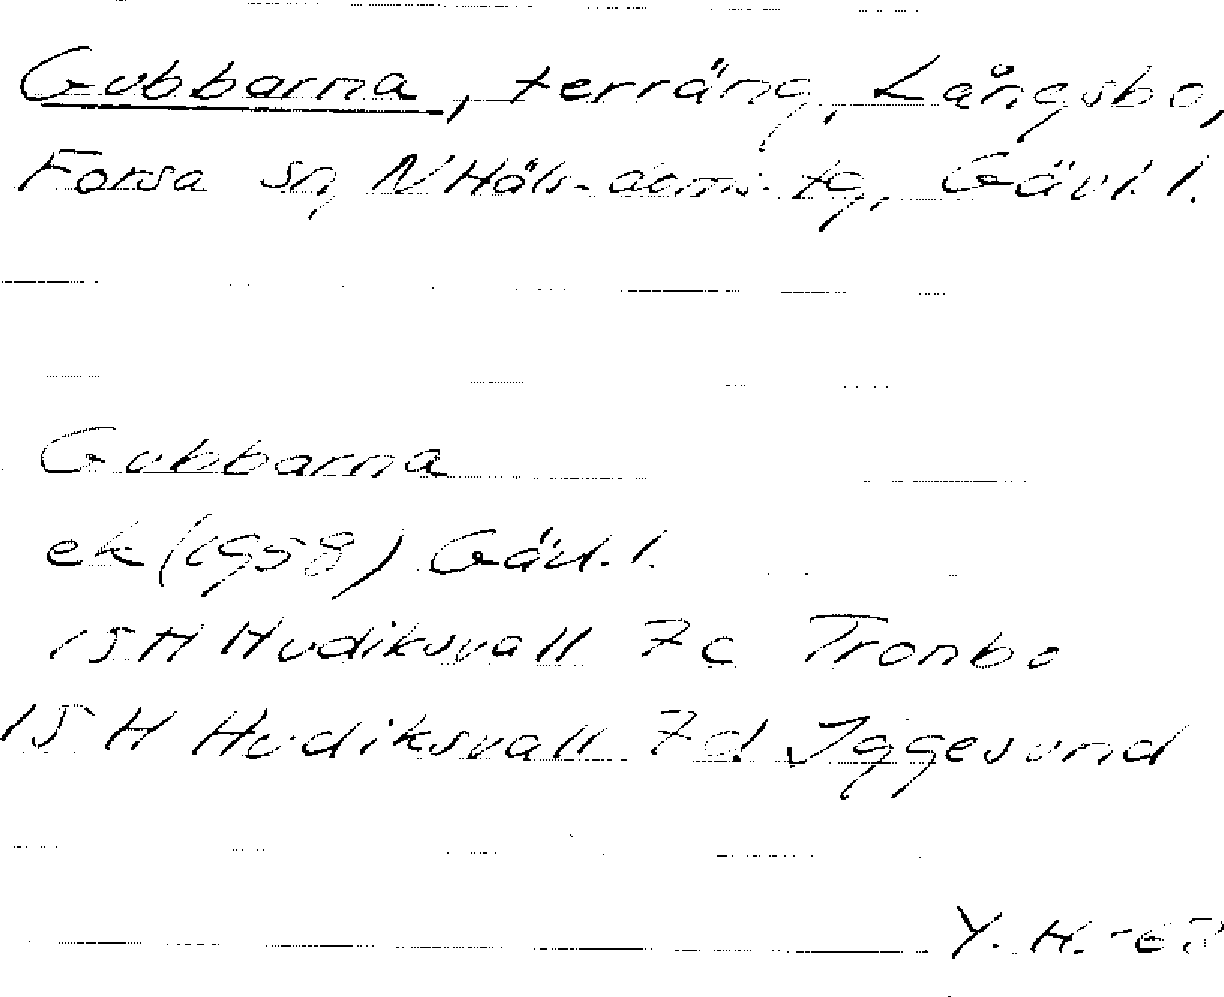 Gubbarna, terräng, Långsbo,
Forsa sn, N Häls. doms. tg, Gävl. l.
Gubbarna
ek (1958) Gävl. l.
15 H Hudiksvall 7c Tronbo
15 H Hudiksvall 7d Iggesund
Y. H.